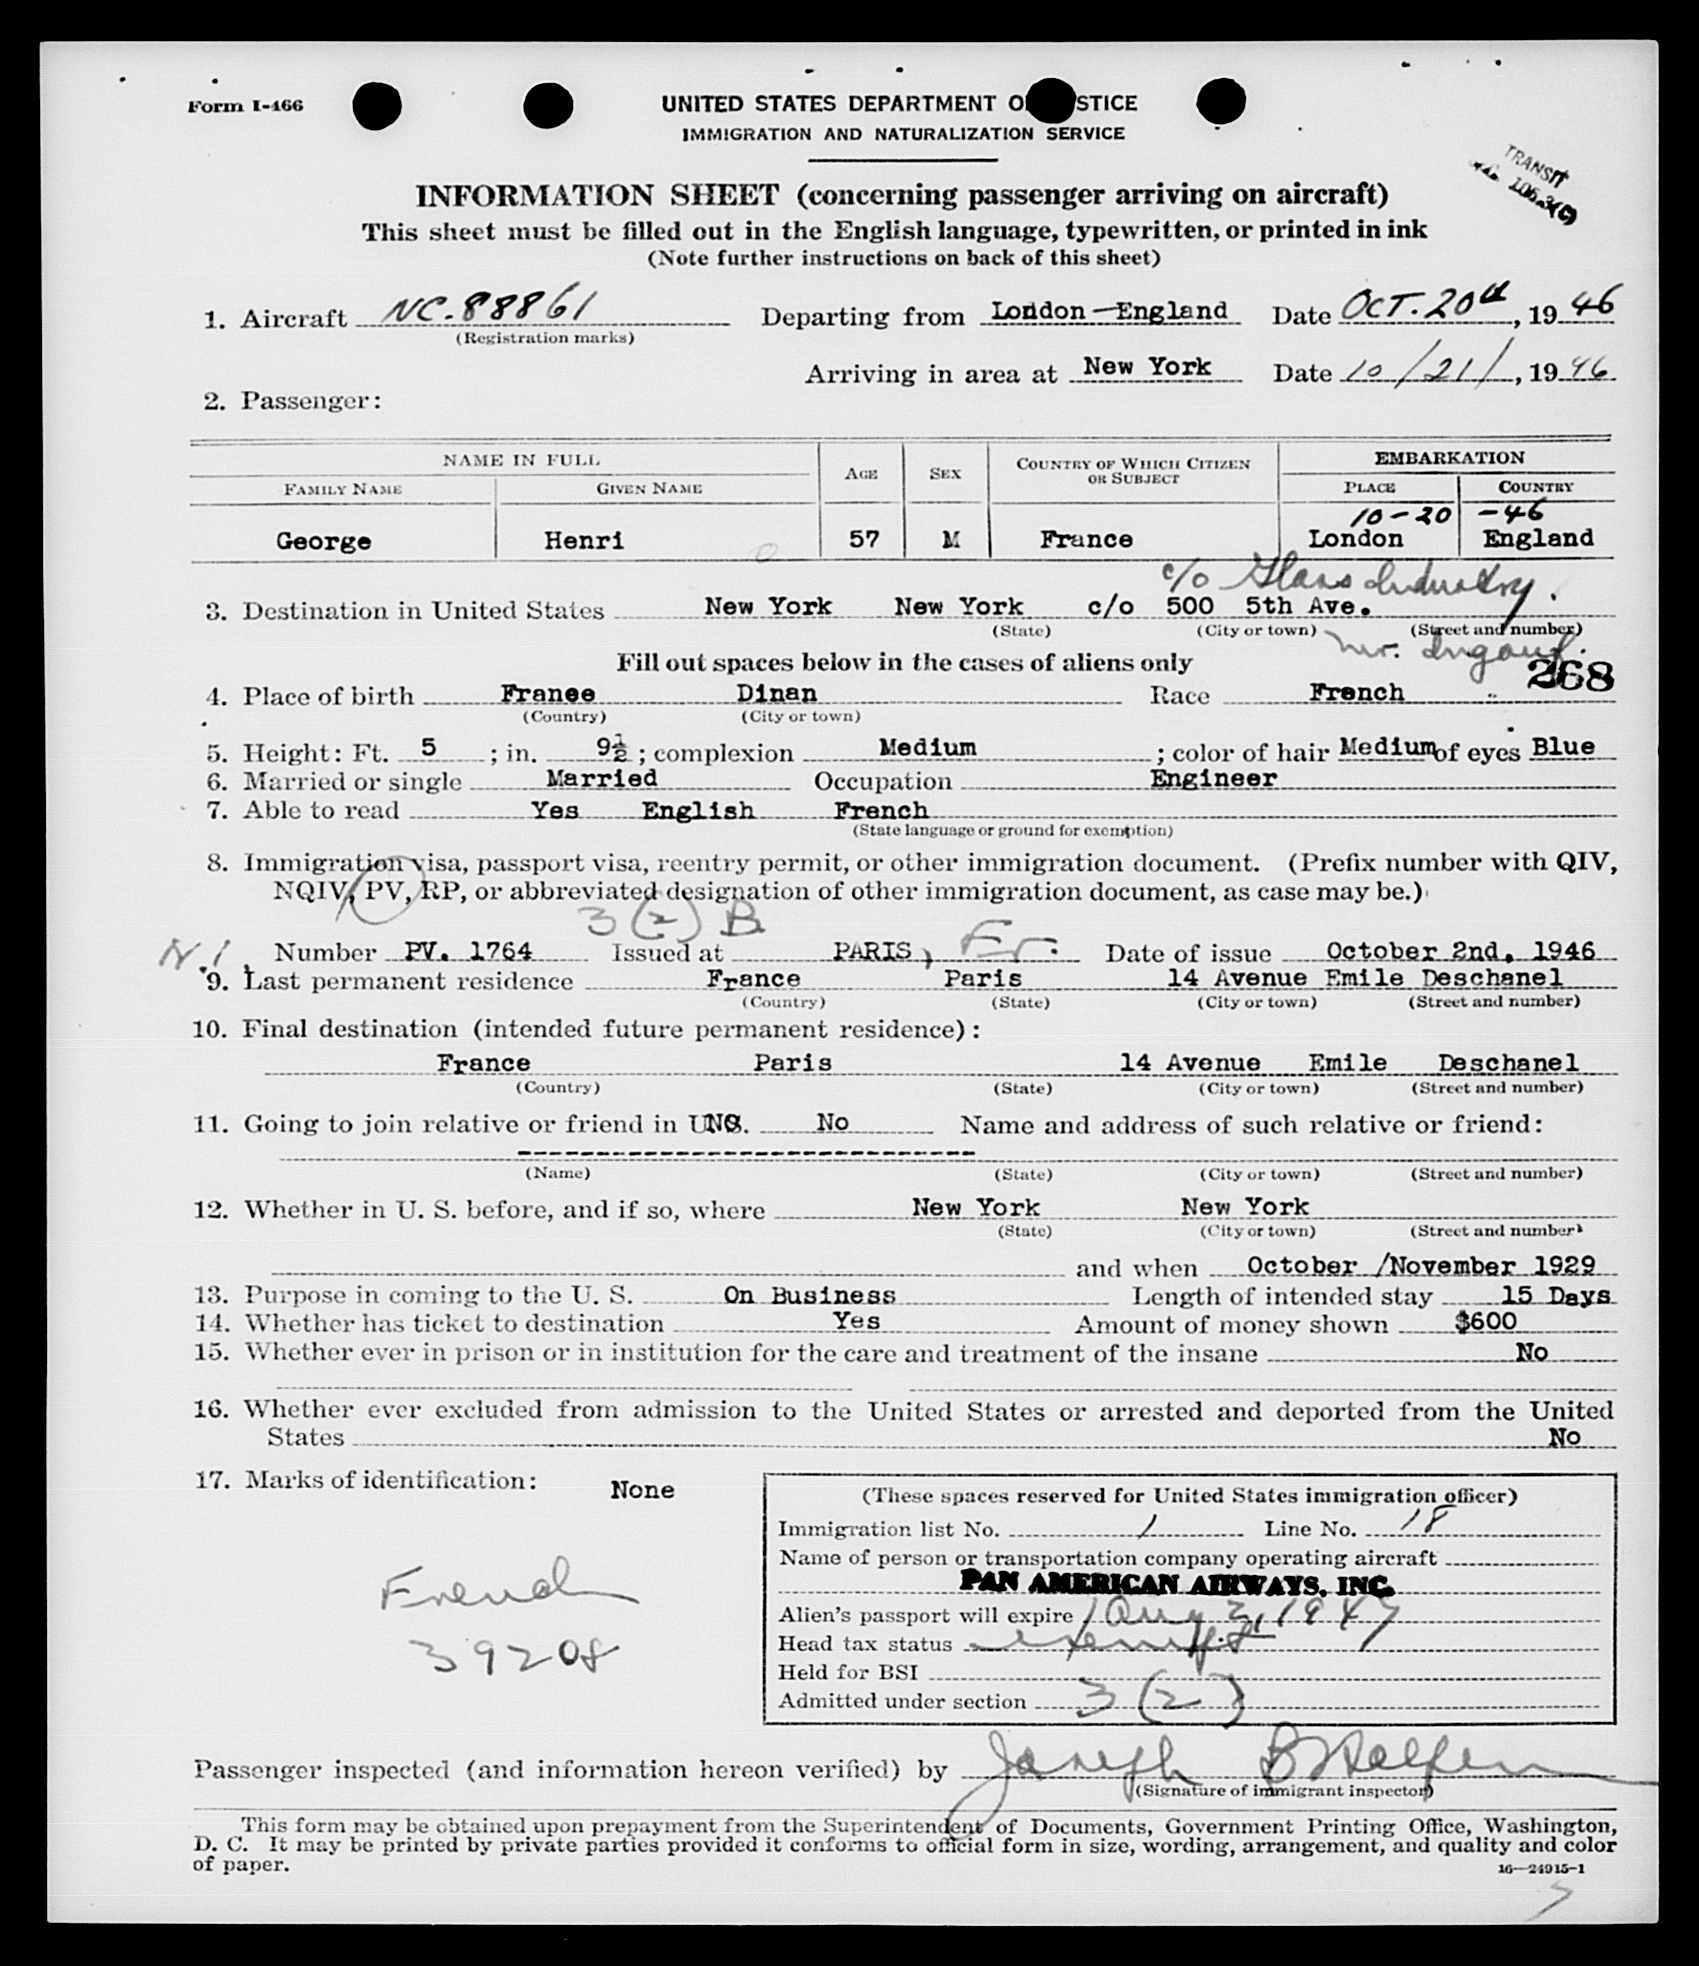 Form I-466
UNITED STATES DEPARTMENT O STICE
IMMIGRATION AND NATURALIZATION SERVICE
TRANSIT
106.3(C)
INFORMATION SHEET (concerning passenger arriving on aircraft)
This sheet must be filled out in the English language, typewritten, or printed in ink
(Note further instructions on back of this sheet)
1. Aircraft NC-88861 Departing from London—England Date OCT. 20th, 1946
(Registration marks)
Arriving in area at New York Date 10/21/, 1946
2. Passenger:
NAME IN FULL AGE SEX COUNTRY OF WHICH CITIZEN OR SUBJECT EMBARKATION
FAMILY NAME GIVEN NAME PLACE COUNTRY
10-20 -46
George Henri 57 M France London England
c/o Glass Industry.
3. Destination in United States New York New York c/o 500 5th Ave.
(State) (City or town) (Street and number)
Mr.
Fill out spaces below in the cases of aliens only
268
4. Place of birth Franee Dinan Race French
(Country) (City or town)
5. Height: Ft. 5 ; in. 9½ ; complexion Medium ; color of hair Medium of eyes Blue
6. Married or single Married Occupation Engineer
7. Able to read Yes English French
(State language or ground for exemption)
8. Immigration visa, passport visa, reentry permit, or other immigration document. (Prefix number with QIV,
NQIV, PV, RP, or abbreviated designation of other immigration document, as case may be.)
3 (2) B
N.I. Number PV. 1764 Issued at PARIS, Fr. Date of issue October 2nd, 1946
9. Last permanent residence France Paris 14 Avenue Emile Deschanel
(Country) (State) (City or town) (Street and number)
10. Final destination (intended future permanent residence):
France Paris 14 Avenue Emile Deschanel
(Country) (State) (City or town) (Street and number)
11. Going to join relative or friend in U.S. No No Name and address of such relative or friend:
------------------------------
(Name) (State) (City or town) (Street and number)
12. Whether in U. S. before, and if so, where New York New York
(State) (City or town) (Street and number)
and when October /November 1929
13. Purpose in coming to the U. S. On Business Length of intended stay 15 Days
14. Whether has ticket to destination Yes Amount of money shown $600
15. Whether ever in prison or in institution for the care and treatment of the insane No
16. Whether ever excluded from admission to the United States or arrested and deported from the United
States No
17. Marks of identification: None
French
39208
(These spaces reserved for United States immigration officer)
Immigration list No. 1 Line No. 18
Name of person or transportation company operating aircraft
PAN AMERICAN AIRWAYS, INC.
Alien's passport will expire Aug 2, 1947
Head tax status exempt
Held for BSI
Admitted under section 3 (2)
Passenger inspected (and information hereon verified) by Joseph B Halpern
(Signature of immigrant inspector)
This form may be obtained upon prepayment from the Superintendent of Documents, Government Printing Office, Washington,
D. C. It may be printed by private parties provided it conforms to official form in size, wording, arrangement, and quality and color
of paper.
16—24915-1